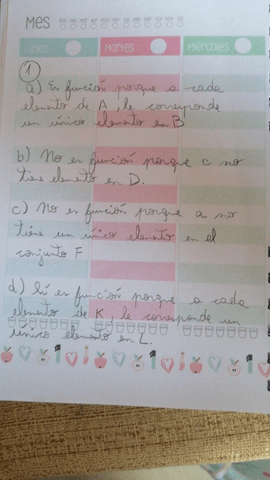 MES
LUNES MARTES MIÉRCOLES
1
a) Es función porque a cada
elemento de A, le corresponde
un único elemento en B
b) No es función porque c no
tiene elemento en D.
c) No es función porque a no
tiene un único elemento en el
conjunto F
d) Sí es función porque a cada
elemento de K, le corresponde un
único elemento en L.